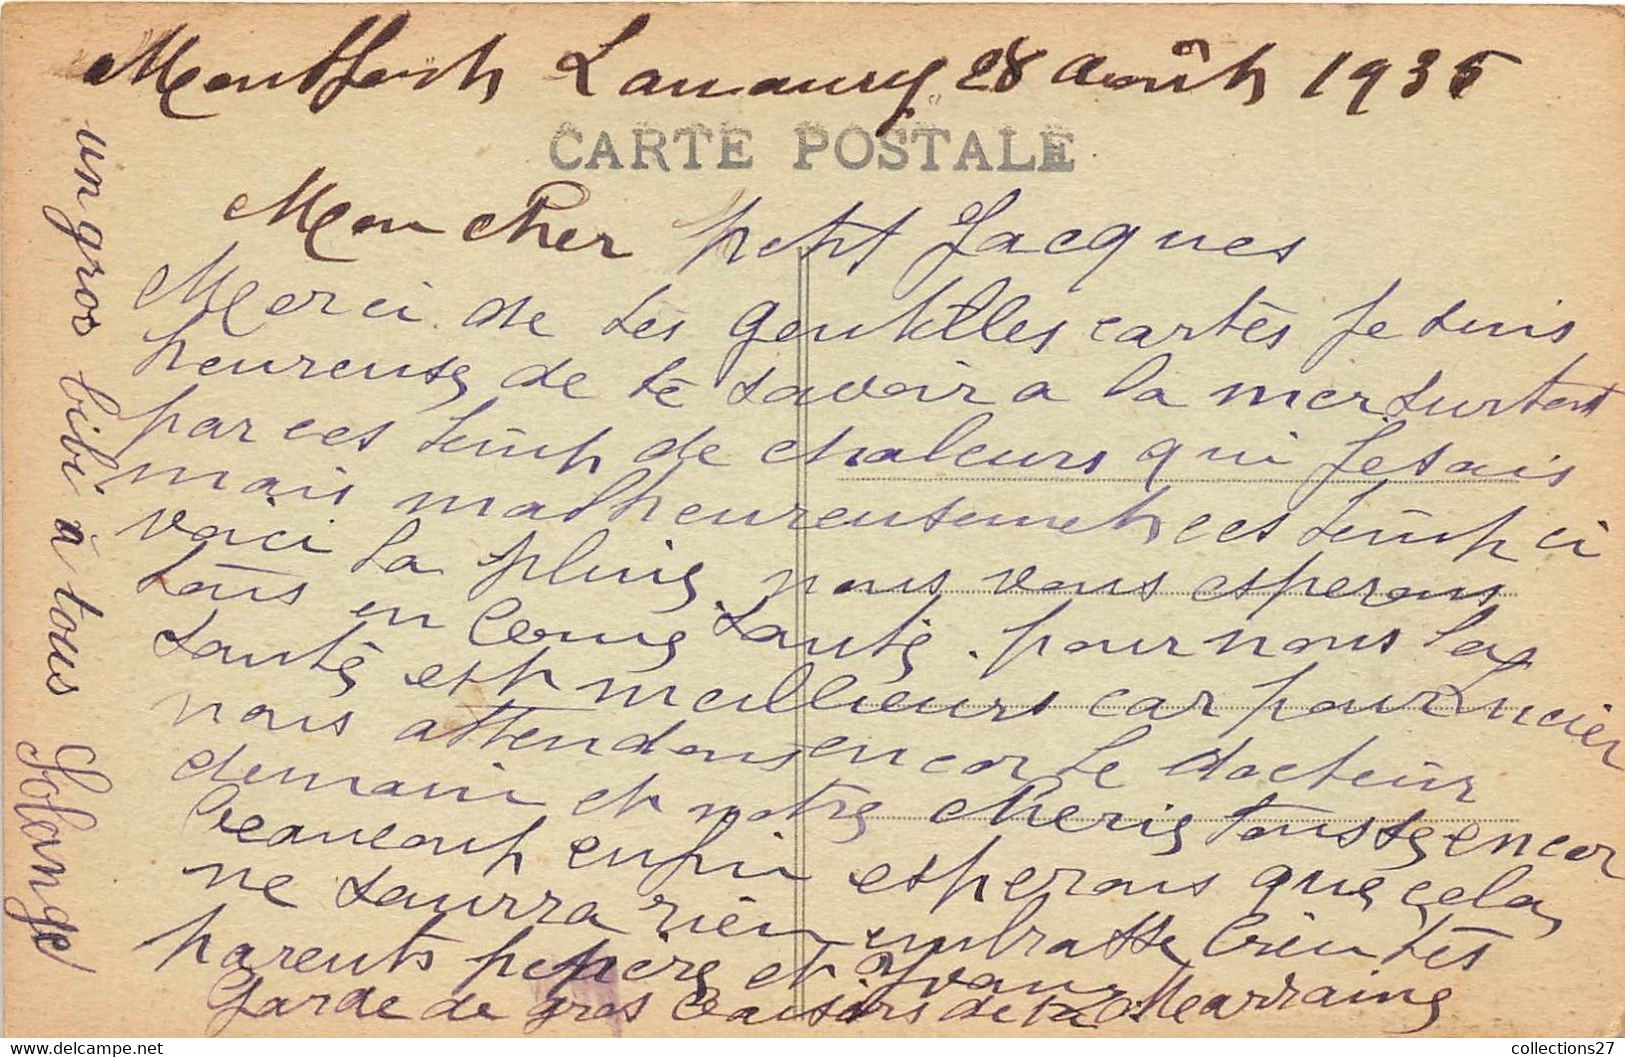 Montfort Lamaury 28 août 1935
CARTE POSTALE
Mon cher petit Jacques
Merci de tes gentilles cartes je suis
heureuse de te savoir a la mer surtout
par ces temp de chaleurs qui fesais
mais malheureusement ces temp ci
voici la pluie nous vous esperons
tous en bonne santé. pour nous la
santé est meillieurs car pour Lucien
nous attendons encor le docteur
demain et notre cherie tousse encor
beaucoup enfin esperons que cela
ne saurra rien embrasse bien tes
parents pepere et Yvan
Garde de gros baisers de ta Marraine
un gros bibi à tous Solange
collections27